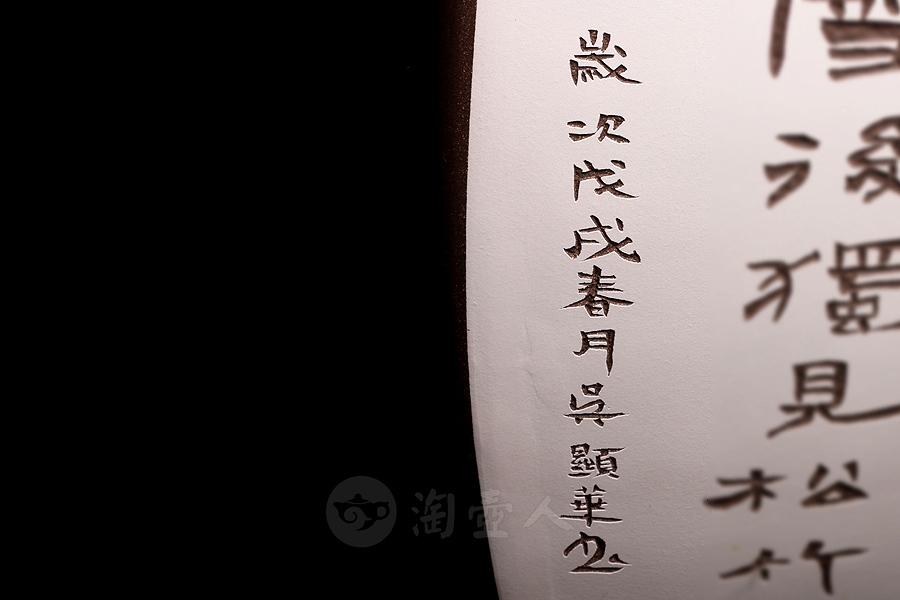 雪後獨見松竹
歲次戊戌春月吳顯華书
淘壺人